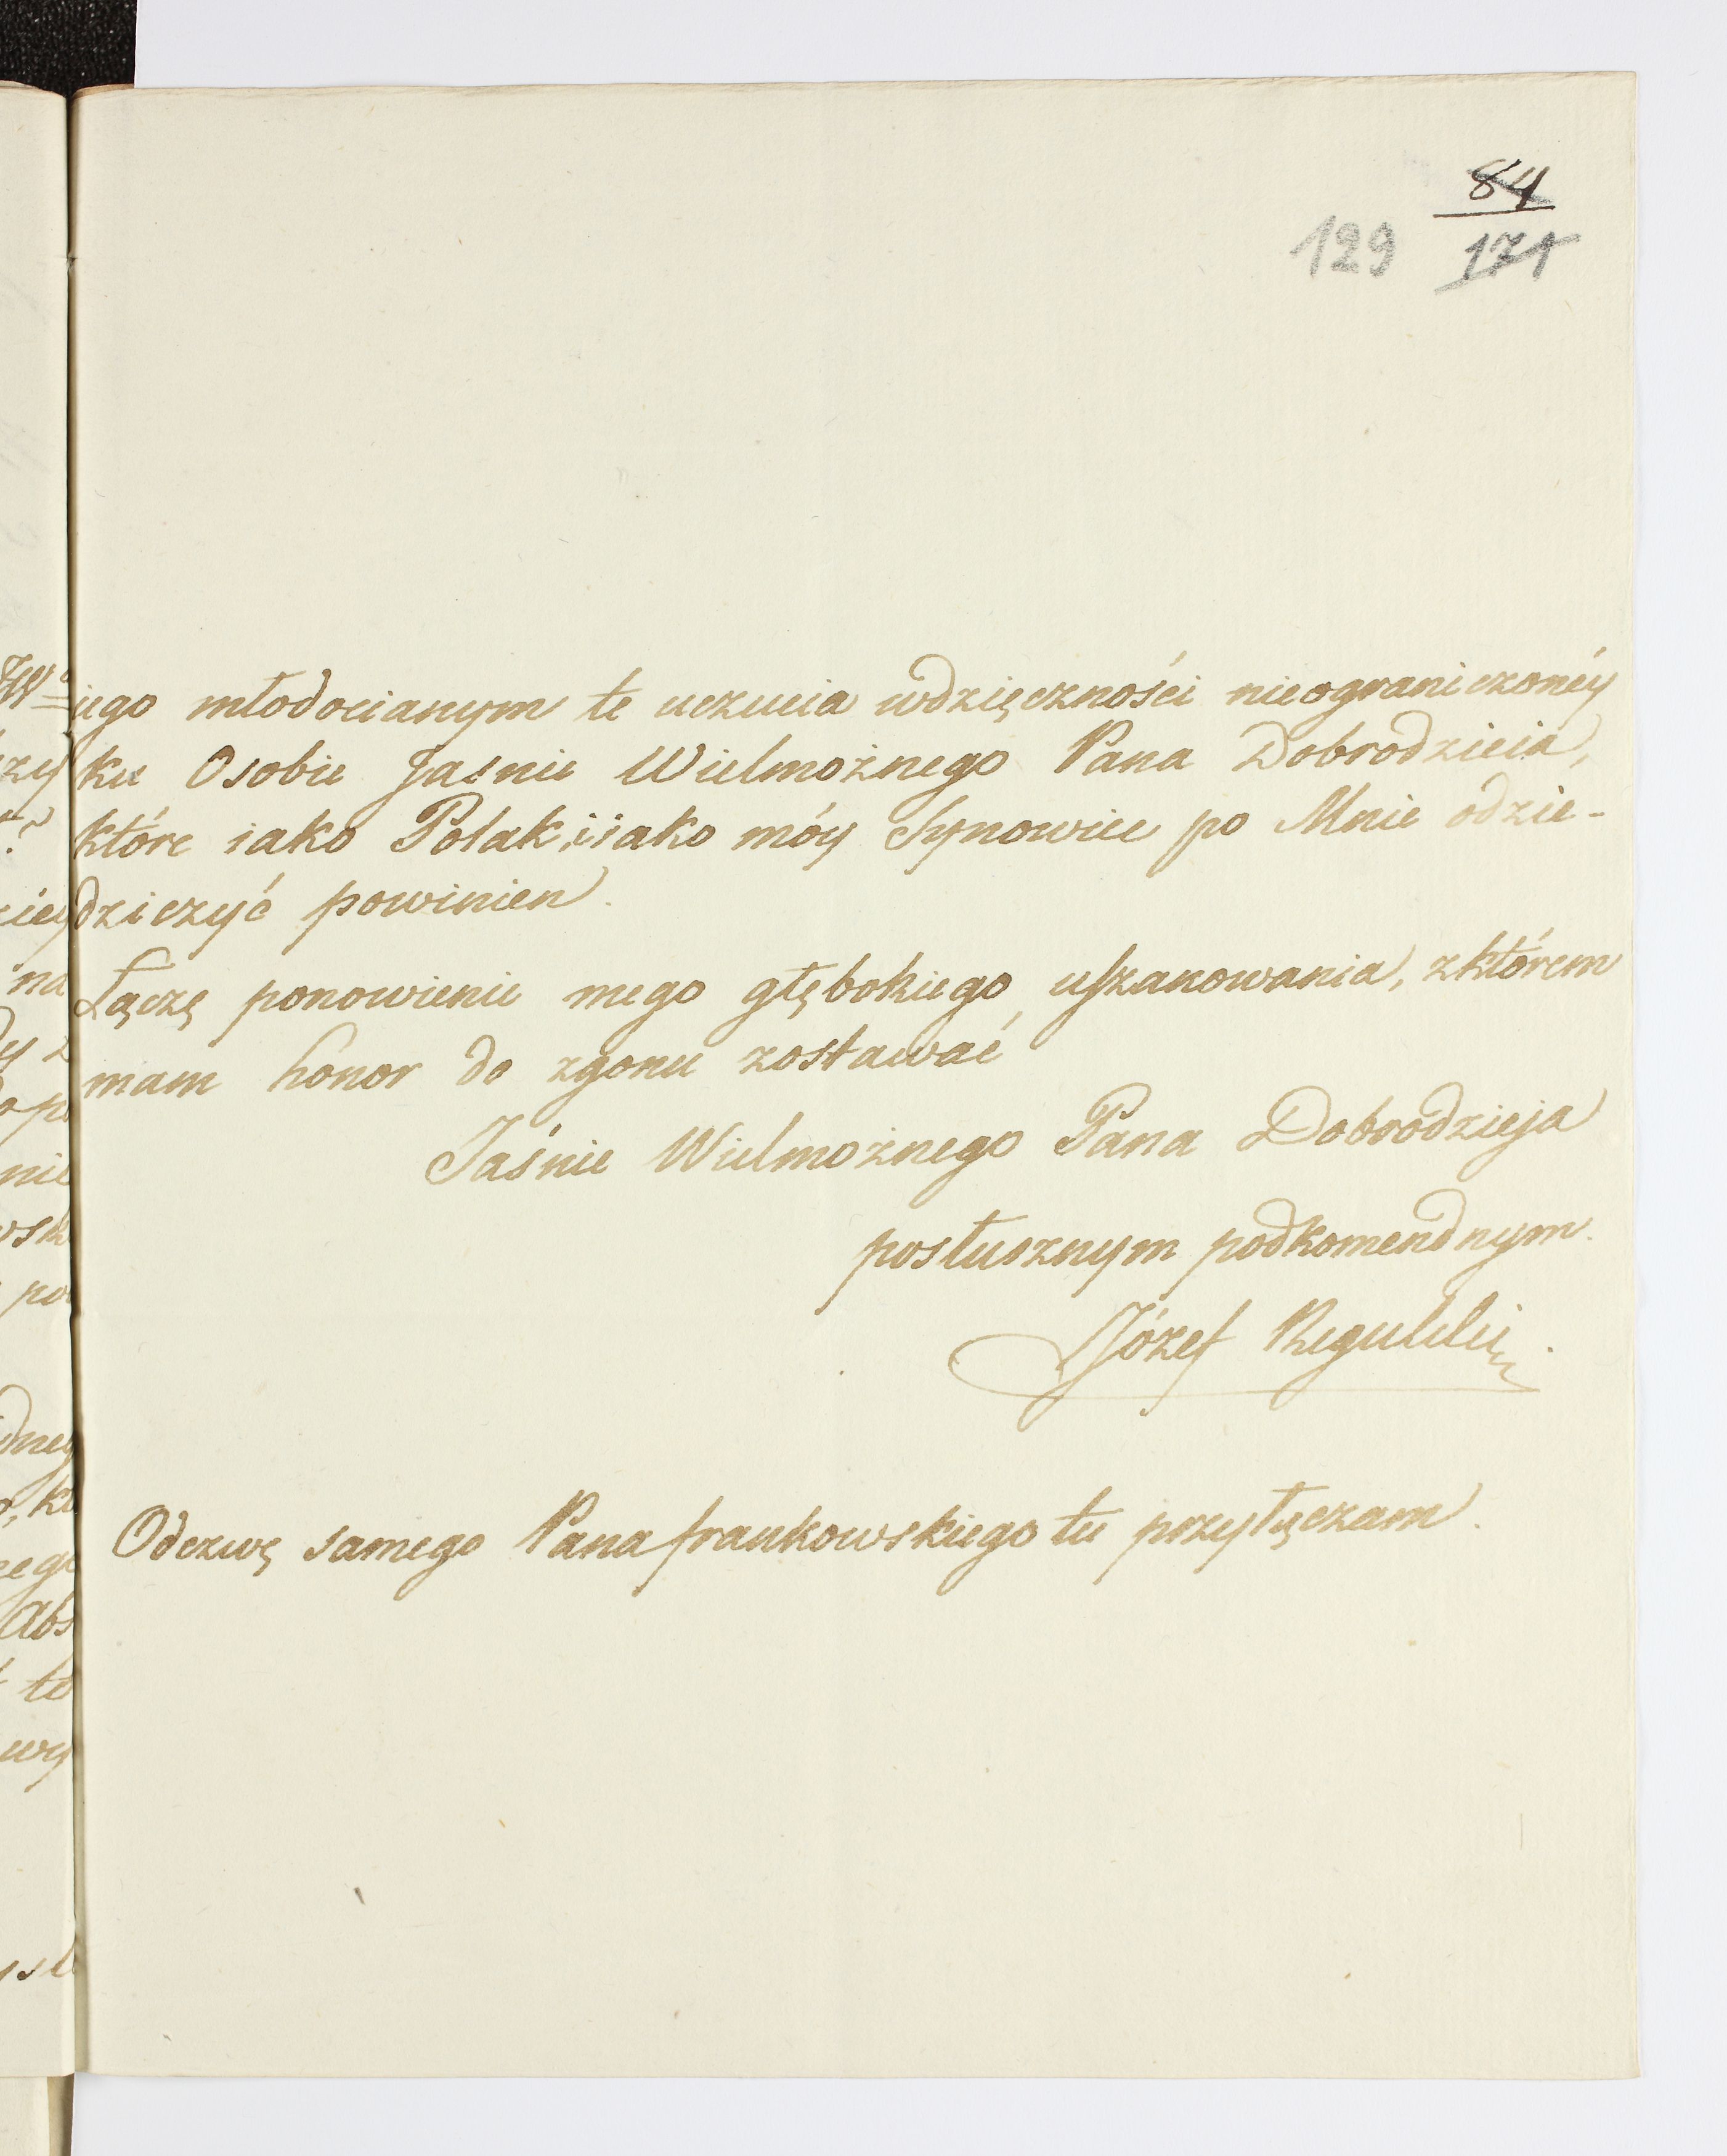 84
129 171
iego młodocianym te uczucia wdzięczności nieograniczonéy
ku Osobie Jasnie Wielmożnego Pana Dobrodzieia,
które iako Polak, i iako móy Synowiec po Mnie odzie-
dziczyć powinien.
Łączę ponowienie mego głębokiego uszanowania, z którem
mam honor do zgonu zostawać
Jaśnie Wielmożnego Pana Dobrodzieja
posłusznym podkomendnym.
Józef
Odezwę samego Pana frankowskiego tu przyłączam.